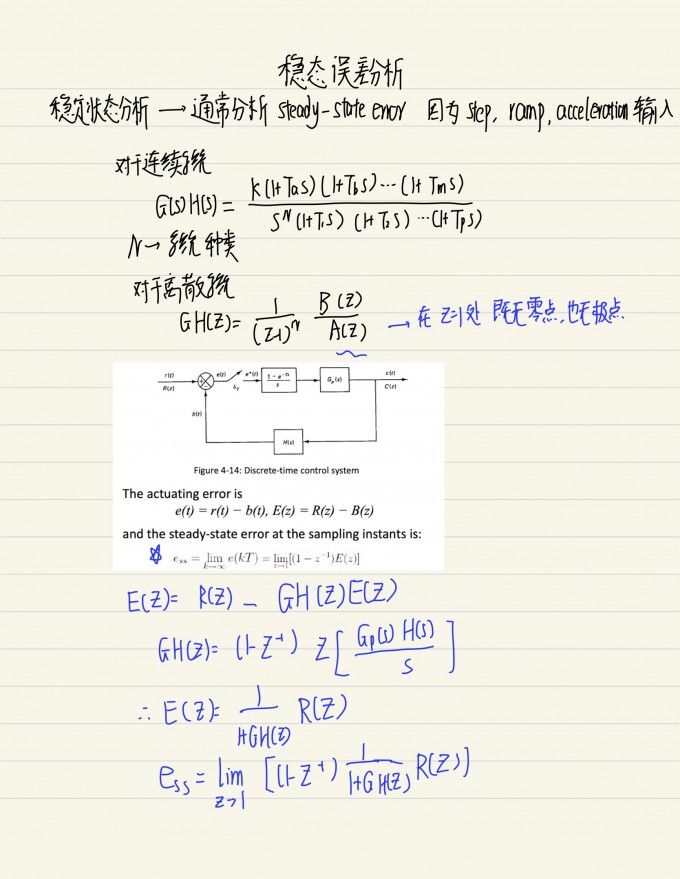 稳态误差分析
稳定状态分析 → 通常分析 steady-state error 因为 step, ramp, acceleration 输入
对于连续系统
G(s)H(s) = K(1+Tas)(1+Tbs)···(1+Tms) / S^N(1+T1s)(1+T2s)···(1+Tps)
N → 系统种类
对于离散系统
GH(Z)= 1/(Z-1)^N B(Z)/A(Z) → 在 Z=1处 既无零点,也无极点
r(t) e(t) e*(t) 1 - e^-Ts / s Gp(s) c(t)
R(z) δT C(z)
b(t)
H(s)
Figure 4-14: Discrete-time control system
The actuating error is
e(t) = r(t) − b(t), E(z) = R(z) − B(z)
and the steady-state error at the sampling instants is:
☆ e_ss = lim_{k→∞} e(kT) = lim_{z→1}[(1 − z^-1)E(z)]
E(Z)= R(Z) - GH(Z)E(Z)
GH(Z)= (1-Z^-1) Z[Gp(s)H(s)/s]
∴ E(Z)= 1/1+GH(Z) R(Z)
e_ss = lim_{z→1} [(1-Z^-1) 1/1+GH(Z) R(Z)]